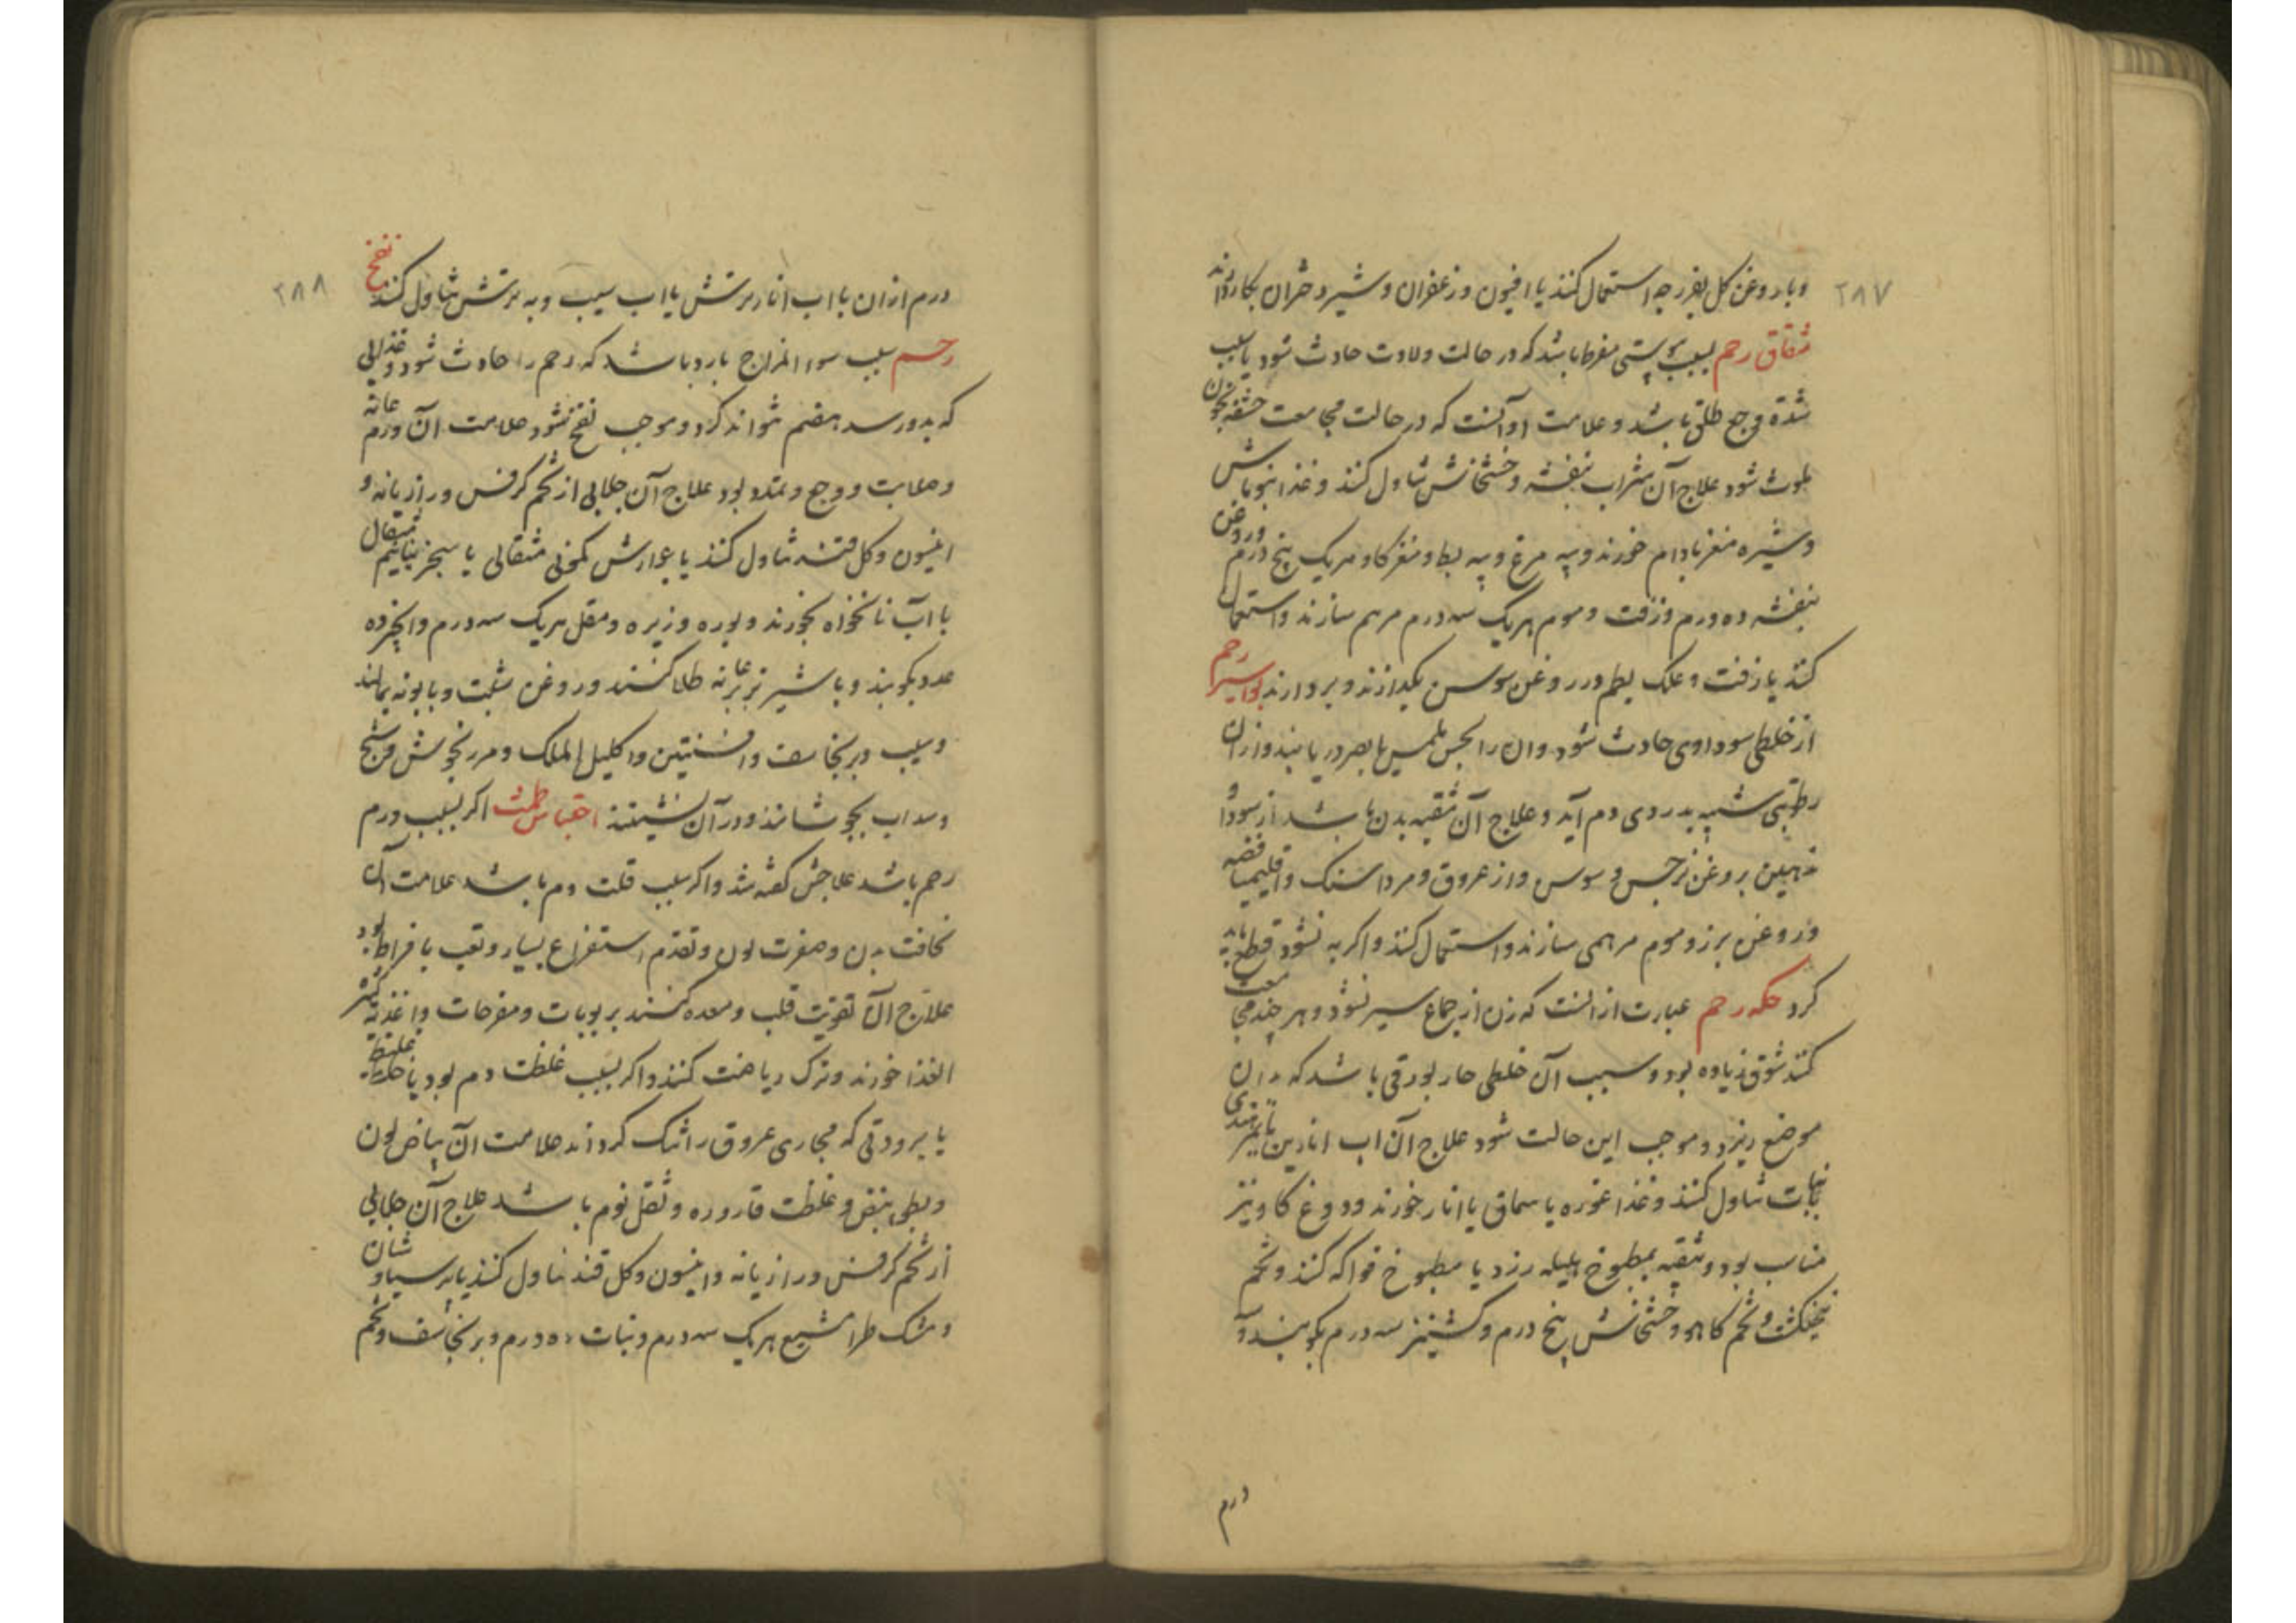 ۲۸۷
و با روغن کل بفرزجه استعمال کنند یا افیون و زعفران و شیر دختران بکار دارند
شقاق رحم بسبب یبسی مفرط باشد که در حالت ولادت حادث شود یا بسبب
شدة وجع طلق باشد و علامت او آنست که در حالت مجامعت حشفه بخون
ملوث شود علاج آن شراب بنفشه و خشخاش تناول کنند و غذا شوربا ماش
و شیره مغز بادام خورند و پیه مرغ و پیه بط و مغز کاو هر یک پنج درم و روغن
بنفشه ده درم و زفت و موم هر یک سه درم مرهم سازند و استعمال
کنند یا زفت و علک بطم در روغن سوسن بکدازند و بردارند بواسیر رحم
از خلطی سوداوی حادث شود و ان را بحس لمس یا بصر دریابند و از آن
رطوبتی شبیه بدردی دم آید و علاج آن تنقیه بدن باشد از سودا و
تدهین بروغن نرجس و سوسن و از عروق و مرداسنک و اقلیمیا فضه
و روغن بزر و موم مرهمی سازند و استعمال کنند و اکر به نشود قطع باید
کرد حکه رحم عبارت از انست که زن از جماع سیر نشود و هر چند مجامعت
کنند شوق زیاده بود و سبب آن خلطی حار بورقی باشد که بدان
موضع ریزد و موجب این حالت شود علاج آن اب انارین یا تمر هندی
با نبات تناول کنند و غذا غوره یا سماق یا انار خورند و دوغ کاو نیز
مناسب بود و تنقیه بمطبوخ هلیله زرد یا مطبوخ فواکه کنند و تخم
پنجنکشت و تخم کاهو و خشخاش پنج درم و کشنیز سه درم بکوبند و
درم
۲۸۸
درم از ان با اب انار ترش یا اب سیب و به ترش تناول کنند نفخ
رحم سبب سوء المزاج بارد باشد که رحم را حادث شود و غذائی
که بدو رسد هضم نتواند کرد و موجب نفخ شود علامت آن ورم عانه
و صلابت و وجع و تمدد بود علاج آن جلابی از تخم کرفس و رازیانه و
انیسون و کل قند تناول کنند یا جوارش کمونی مثقالی یا سجزنیا نیم مثقال
با آب نانخواه بخورند و بوره و زیره و مقل هر یک سه درم و انجیر ده
عدد بکوبند و با شیر بز بر عانه طلا کنند و روغن شبت و بابونه بمالند
و برنجاسف و افسنتین و اکلیل الملک و مرزنجوش و شیح
و سداب بجوشانند و در آن نشینند احتباس طمث اکر بسبب ورم
رحم باشد علاجش کفته شد و اکر سبب قلت دم باشد علامت آن
نحافت بدن و صفرت لون و تقدم استفراغ بسیار و تعب با فراط بود
علاج آن تقویت قلب و معده کنند بربوبات و مفرحات و اغذیه کثیر
الغذا خورند و ترک ریاضت کنند و اکر بسبب غلظت دم بود یا خلط غلیظ
یا برودتی که مجاری عروق را تنک کرداند علامت آن بیاض لون
و بطی نبض و غلظت قاروره و ثقل نوم باشد علاج آن جلابی
از تخم کرفس و رازیانه و انیسون و کل قند تناول کنند یا پرسیاوشان
و مشک طرامشیع هر یک سه درم و نبات ده درم و برنجاسف و تخم